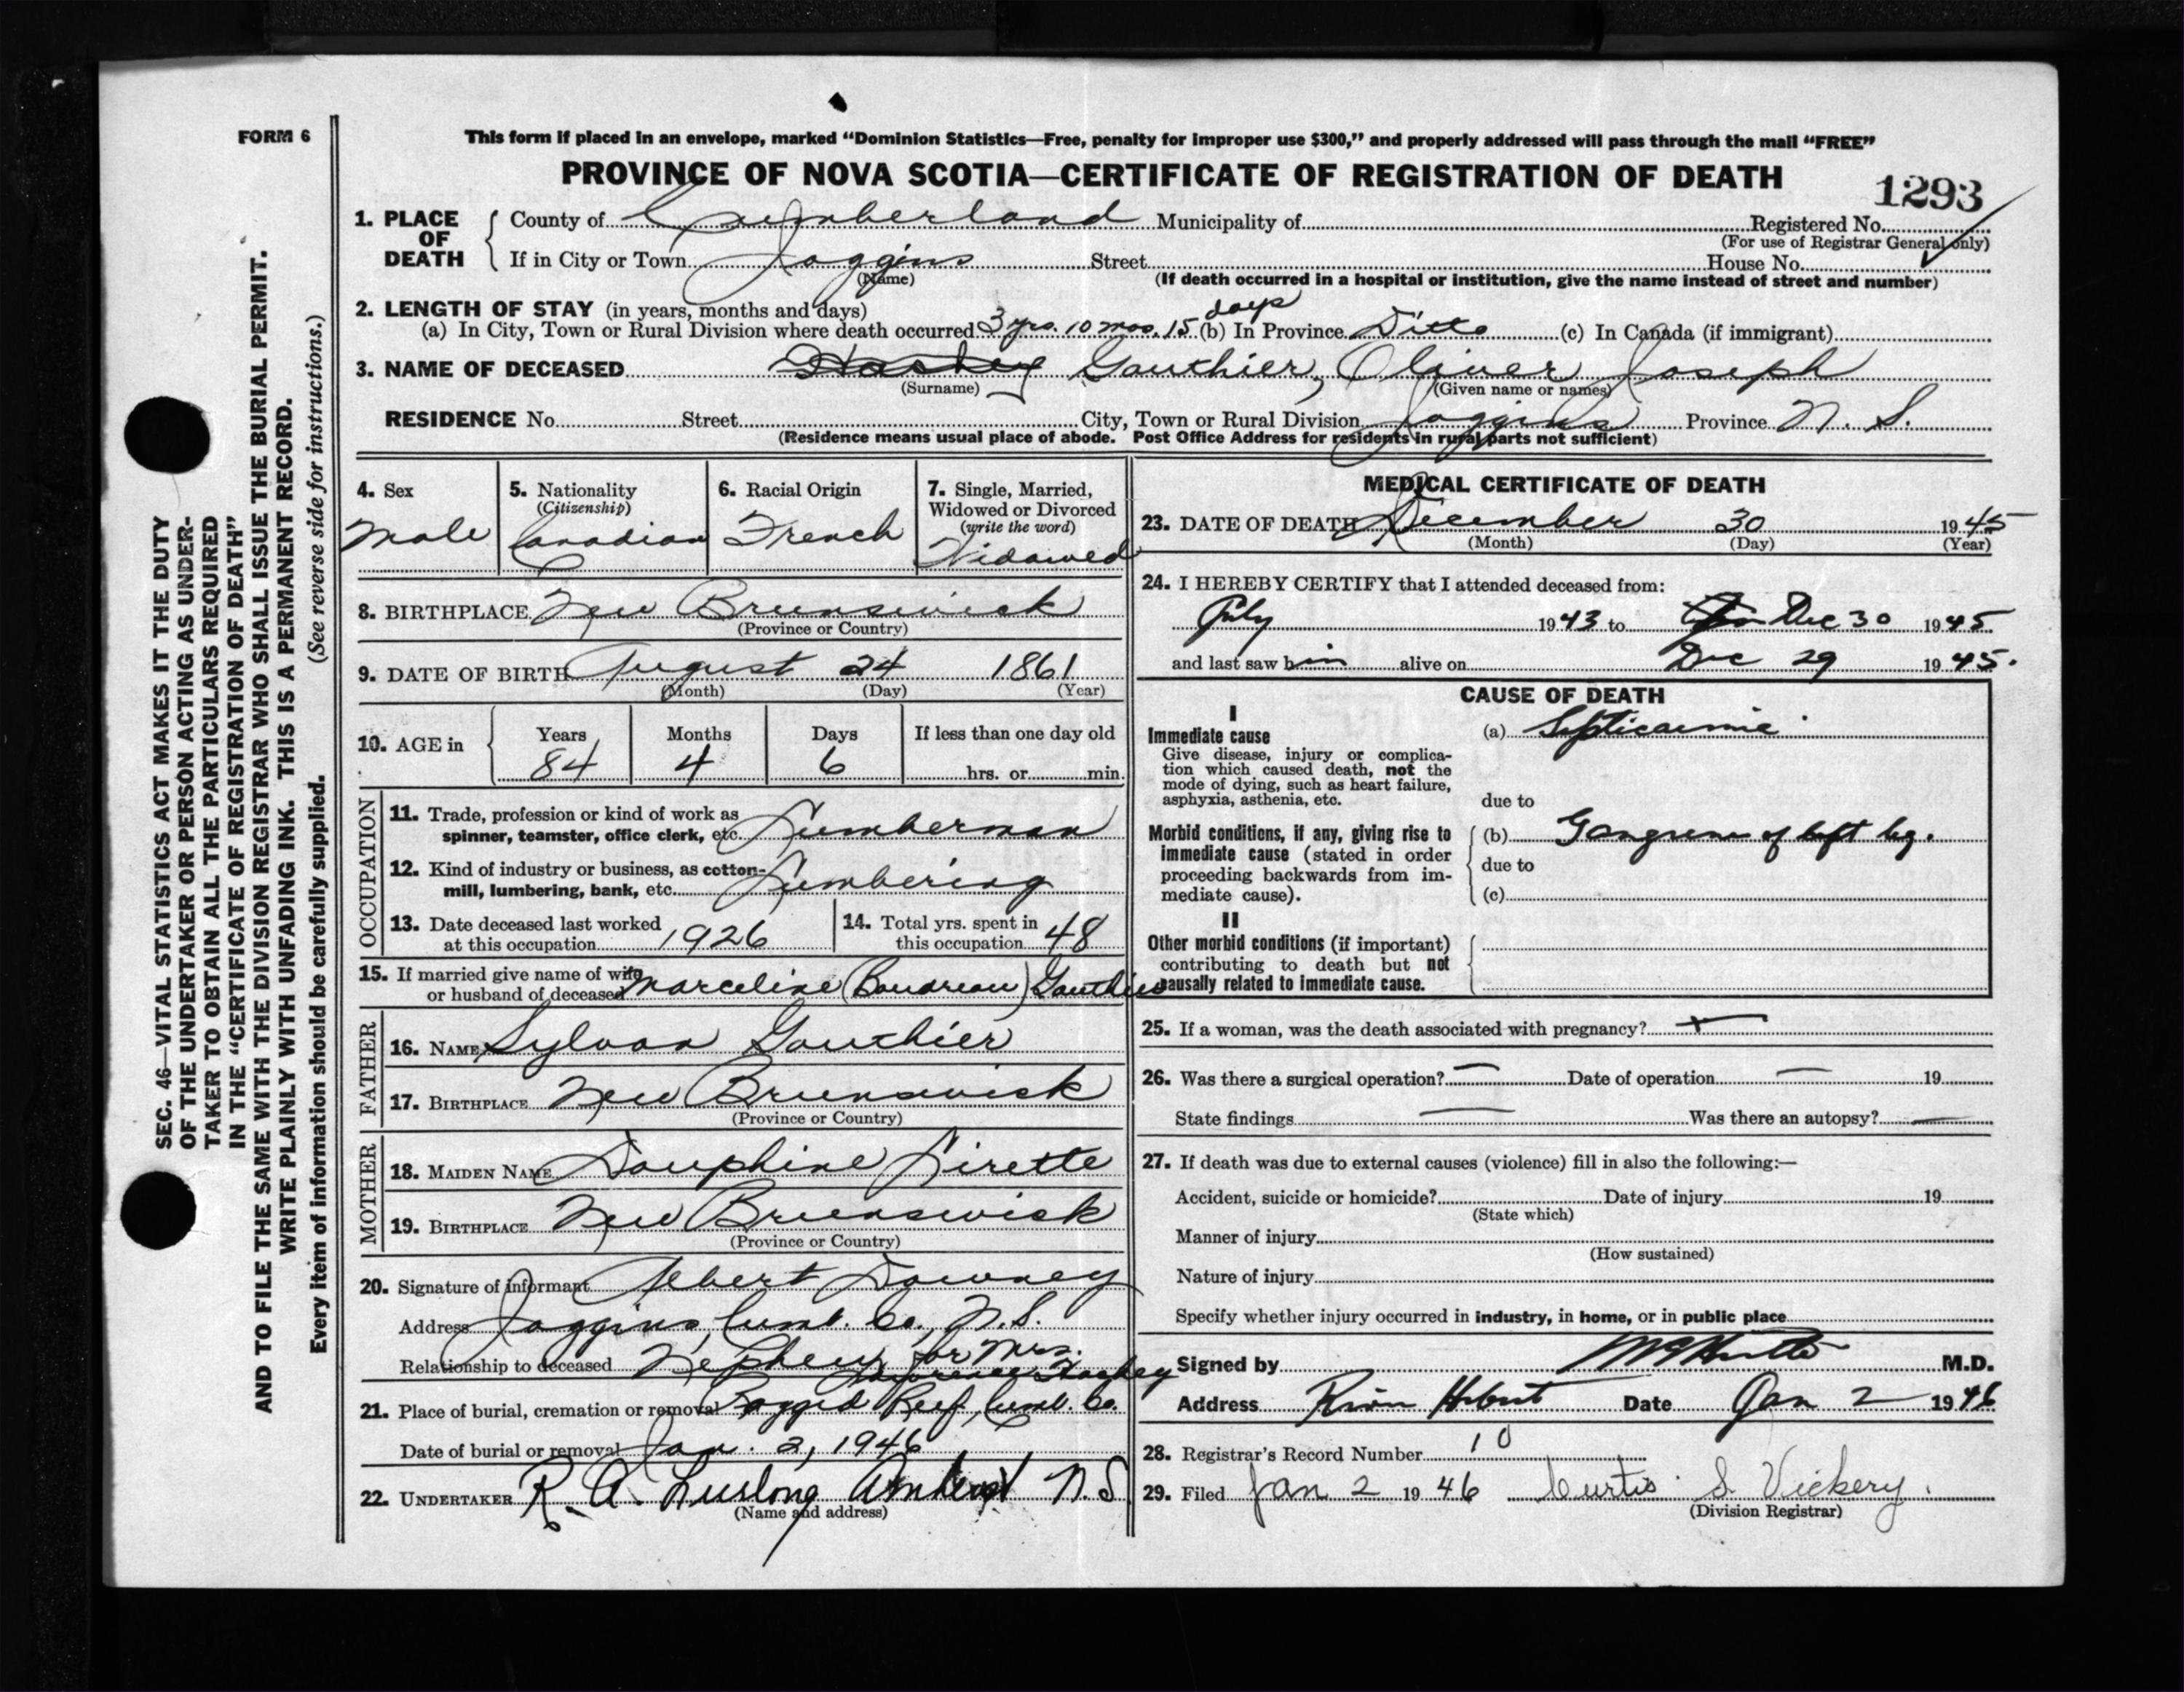 FORM 6
This form if placed in an envelope, marked “Dominion Statistics—Free, penalty for improper use $300,” and properly addressed will pass through the mail “FREE”
PROVINCE OF NOVA SCOTIA—CERTIFICATE OF REGISTRATION OF DEATH
1293
1. PLACE OF DEATH County of Cumberland Municipality of Registered No.
(For use of Registrar General only)
If in City or Town Joggins Street House No.
(Name) (If death occurred in a hospital or institution, give the name instead of street and number)
2. LENGTH OF STAY (in years, months and days)
(a) In City, Town or Rural Division where death occurred 3 yrs. 10 mos. 15 days (b) In Province Ditto (c) In Canada (if immigrant)
3. NAME OF DECEASED Gauthier, Oliver Joseph
(Surname) (Given name or names)
RESIDENCE No. Street City, Town or Rural Division Joggins Province N. S.
(Residence means usual place of abode. Post Office Address for residents in rural parts not sufficient)
4. Sex
Male
5. Nationality
(Citizenship)
Canadian
6. Racial Origin
French
7. Single, Married,
Widowed or Divorced
(write the word)
Widowed
8. BIRTHPLACE New Brunswick
(Province or Country)
9. DATE OF BIRTH August 24 1861
(Month) (Day) (Year)
10. AGE in Years Months Days If less than one day old
84 4 6 hrs. or min.
OCCUPATION
11. Trade, profession or kind of work as
spinner, teamster, office clerk, etc. Lumberman
12. Kind of industry or business, as cotton-
mill, lumbering, bank, etc. Lumbering
13. Date deceased last worked
at this occupation 1926
14. Total yrs. spent in
this occupation 48
15. If married give name of wife
or husband of deceased Marceline (Boudreau) Gauthier
FATHER
16. NAME Sylvan Gauthier
17. BIRTHPLACE New Brunswick
(Province or Country)
MOTHER
18. MAIDEN NAME Dauphine Lirette
19. BIRTHPLACE New Brunswick
(Province or Country)
20. Signature of informant Albert Downey
Address Joggins, Cumb. Co., N.S.
Relationship to deceased Nephew for Mrs.
21. Place of burial, cremation or removal Ragged Reef, Cumb. Co.
Date of burial or removal Jan. 2, 1946
22. UNDERTAKER R. A. Amherst N.S
(Name and address)
MEDICAL CERTIFICATE OF DEATH
23. DATE OF DEATH December 30 1945
(Month) (Day) (Year)
24. I HEREBY CERTIFY that I attended deceased from:
July 1943 to Dec 30 1945
and last saw him alive on Dec 29 1945.
CAUSE OF DEATH
I
Immediate cause
Give disease, injury or complica-
tion which caused death, not the
mode of dying, such as heart failure,
asphyxia, asthenia, etc.
(a) Septicaemia
due to
Morbid conditions, if any, giving rise to
immediate cause (stated in order
proceeding backwards from im-
mediate cause).
(b) Gangrene of left leg.
due to
(c)
II
Other morbid conditions (if important)
contributing to death but not
causally related to immediate cause.
25. If a woman, was the death associated with pregnancy?
26. Was there a surgical operation? — Date of operation — 19
State findings — Was there an autopsy? —
27. If death was due to external causes (violence) fill in also the following:—
Accident, suicide or homicide? Date of injury 19
(State which)
Manner of injury
(How sustained)
Nature of injury
Specify whether injury occurred in industry, in home, or in public place
Signed by M.D.
Address River Hebert Date Jan 2 1946
28. Registrar's Record Number 10
29. Filed Jan 2 1946 Curtis S. Vickery.
(Division Registrar)
SEC. 46—VITAL STATISTICS ACT MAKES IT THE DUTY
OF THE UNDERTAKER OR PERSON ACTING AS UNDER-
TAKER TO OBTAIN ALL THE PARTICULARS REQUIRED
IN THE “CERTIFICATE OF REGISTRATION OF DEATH”
AND TO FILE THE SAME WITH THE DIVISION REGISTRAR WHO SHALL ISSUE THE BURIAL PERMIT.
WRITE PLAINLY WITH UNFADING INK. THIS IS A PERMANENT RECORD.
Every item of information should be carefully supplied. (See reverse side for instructions.)